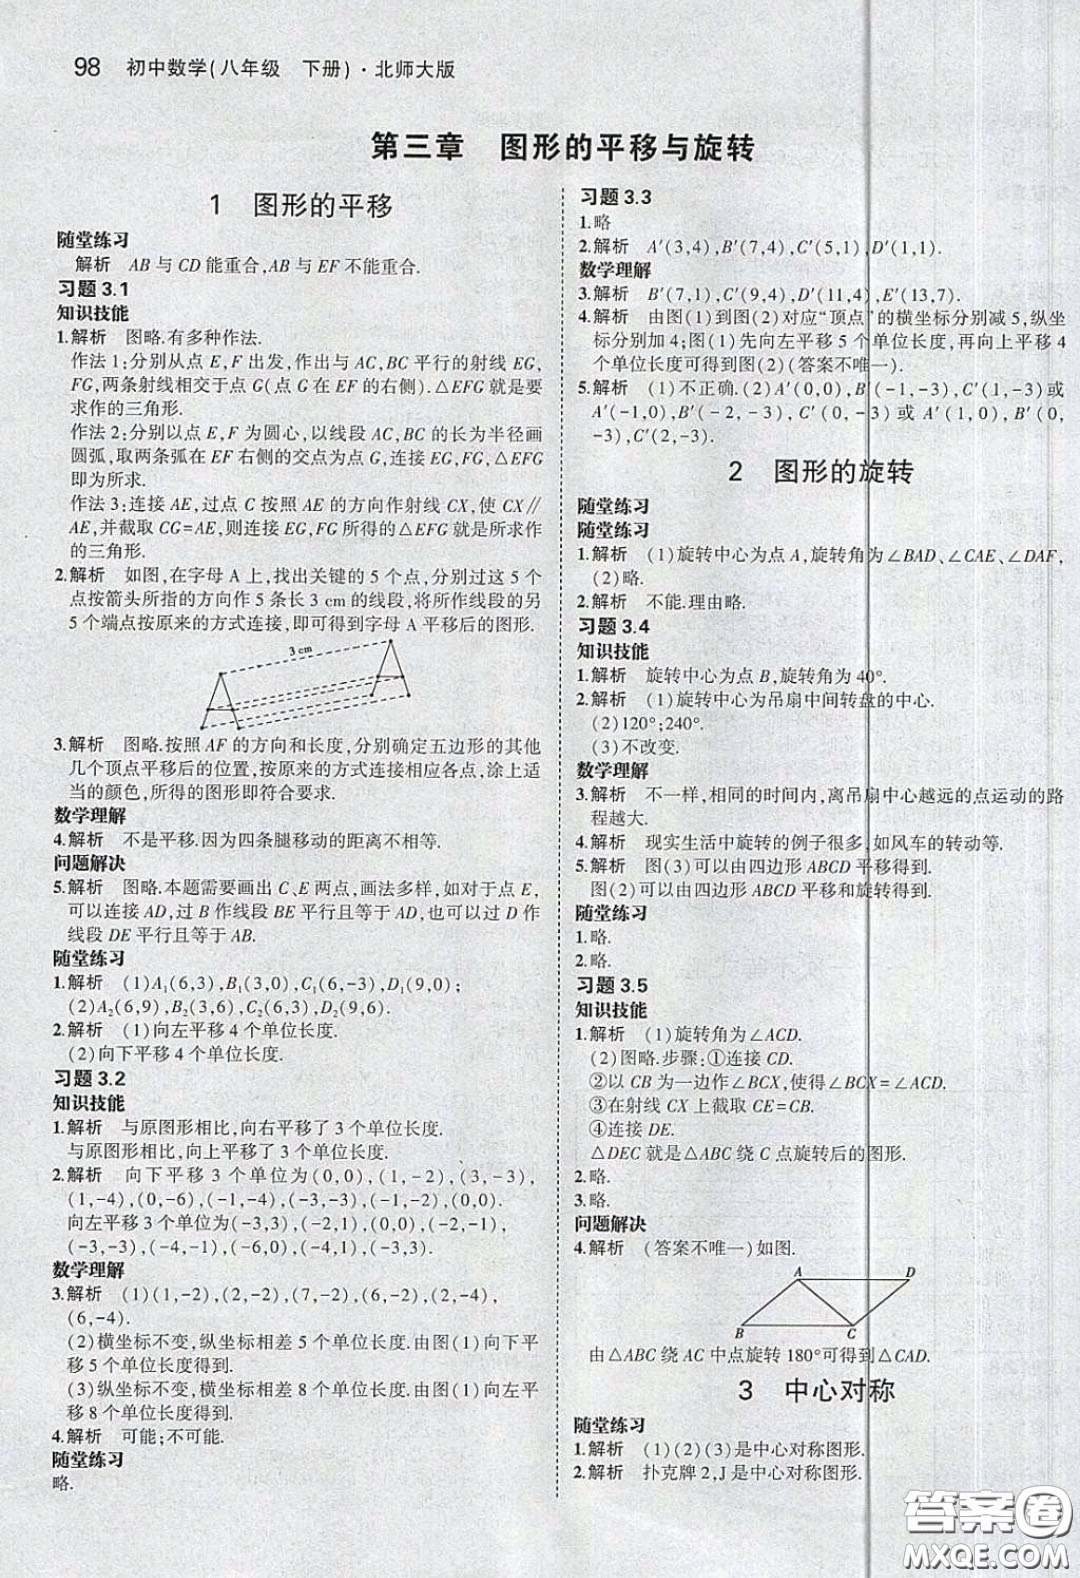 98 初中数学(八年级 下册)·北师大版
第三章 图形的平移与旋转
1 图形的平移
随堂练习
解析 AB 与 CD 能重合,AB 与 EF 不能重合.
习题 3.1
知识技能
1.解析 图略.有多种作法.
作法 1:分别从点 E,F 出发,作出与 AC,BC 平行的射线 EG,
FG,两条射线相交于点 G(点 G 在 EF 的右侧).△EFG 就是要
求作的三角形.
作法 2:分别以点 E,F 为圆心,以线段 AC,BC 的长为半径画
圆弧,取两条弧在 EF 右侧的交点为点 G,连接 EG,FG,△EFG
即为所求.
作法 3:连接 AE,过点 C 按照 AE 的方向作射线 CX,使 CX∥
AE,并截取 CG=AE,则连接 EG,FG 所得的△EFG 就是所求作
的三角形.
2.解析 如图,在字母 A 上,找出关键的 5 个点,分别过这 5 个
点按箭头所指的方向作 5 条长 3 cm 的线段,将所作线段的另
5 个端点按原来的方式连接,即可得到字母 A 平移后的图形.
3 cm
3.解析 图略.按照 AF 的方向和长度,分别确定五边形的其他
几个顶点平移后的位置,按原来的方式连接相应各点,涂上适
当的颜色,所得的图形即符合要求.
数学理解
4.解析 不是平移.因为四条腿移动的距离不相等.
问题解决
5.解析 图略.本题需要画出 C、E 两点.画法多样,如对于点 E,
可以连接 AD,过 B 作线段 BE 平行且等于 AD,也可以过 D 作
线段 DE 平行且等于 AB.
随堂练习
1.解析 (1)A₁(6,3),B₁(3,0),C₁(6,-3),D₁(9,0);
(2)A₂(6,9),B₂(3,6),C₂(6,3),D₂(9,6).
2.解析 (1)向左平移 4 个单位长度.
(2)向下平移 4 个单位长度.
习题 3.2
知识技能
1.解析 与原图形相比,向右平移了 3 个单位长度.
与原图形相比,向上平移了 3 个单位长度.
2.解析 向下平移 3 个单位为(0,0),(1,-2),(3,-3),
(1,-4),(0,-6),(-1,-4),(-3,-3),(-1,-2),(0,0).
向左平移 3 个单位为(-3,3),(-2,1),(0,0),(-2,-1),
(-3,-3),(-4,-1),(-6,0),(-4,1),(-3,3).
数学理解
3.解析 (1)(1,-2),(2,-2),(7,-2),(6,-2),(2,-4),
(6,-4).
(2)横坐标不变,纵坐标相差 5 个单位长度.由图(1)向下平
移 5 个单位长度得到.
(3)纵坐标不变,横坐标相差 8 个单位长度.由图(1)向左平
移 8 个单位长度得到.
4.解析 可能;不可能.
随堂练习
略.
习题 3.3
1.略
2.解析 A′(3,4),B′(7,4),C′(5,1),D′(1,1).
数学理解
3.解析 B′(7,1),C′(9,4),D′(11,4),E′(13,7).
4.解析 由图(1)到图(2)对应“顶点”的横坐标分别减 5,纵坐
标分别加 4;图(1)先向左平移 5 个单位长度,再向上平移 4
个单位长度可得到图(2)(答案不唯一).
5.解析 (1)不正确.(2)A′(0,0),B′(-1,-3),C′(1,-3)或
A′(-1,0),B′(-2,-3),C′(0,-3)或 A′(1,0),B′(0,
-3),C′(2,-3).
2 图形的旋转
随堂练习
随堂练习
1.解析 (1)旋转中心为点 A,旋转角为∠BAD、∠CAE、∠DAF,
(2)略.
2.解析 不能.理由略.
习题 3.4
知识技能
1.解析 旋转中心为点 B,旋转角为 40°.
2.解析 (1)旋转中心为吊扇中间转盘的中心.
(2)120°;240°.
(3)不改变.
数学理解
3.解析 不一样,相同的时间内,离吊扇中心越远的点运动的路
程越大.
4.解析 现实生活中旋转的例子很多,如风车的转动等.
5.解析 图(3)可以由四边形 ABCD 平移得到.
图(2)可以由四边形 ABCD 平移和旋转得到.
随堂练习
1.略.
2.略.
习题 3.5
知识技能
1.解析 (1)旋转角为∠ACD.
(2)图略.步骤:①连接 CD.
②以 CB 为一边作∠BCX,使得∠BCX=∠ACD.
③在射线 CX 上截取 CE=CB.
④连接 DE.
△DEC 就是△ABC 绕 C 点旋转后的图形.
2.略.
3.略.
问题解决
4.解析 (答案不唯一)如图.
A D
B C
由△ABC 绕 AC 中点旋转 180°可得到△CAD.
3 中心对称
随堂练习
1.解析 (1)(2)(3)是中心对称图形.
2.解析 扑克牌 2,J 是中心对称图形.
答案圈
MXQE.COM